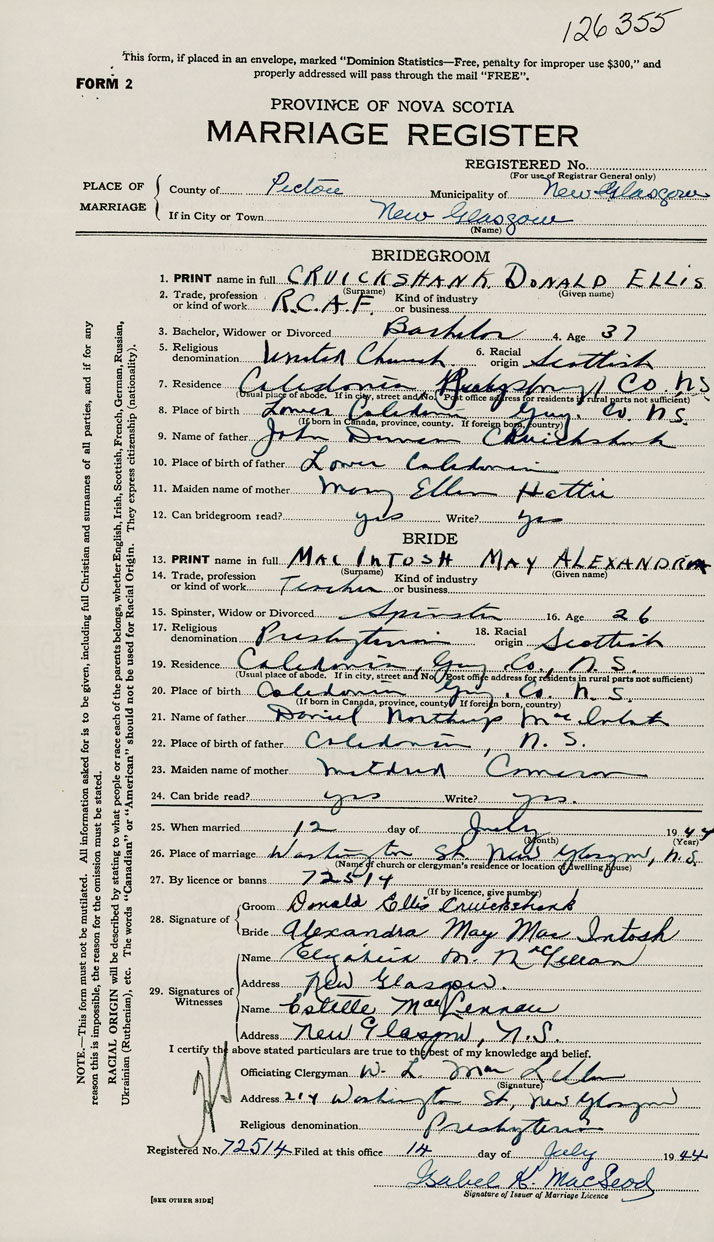 126355
This form, if placed in an envelope, marked “Dominion Statistics—Free, penalty for improper use $300,” and
properly addressed will pass through the mail “FREE”.
FORM 2
PROVINCE OF NOVA SCOTIA
MARRIAGE REGISTER
REGISTERED No.
(For use of Registrar General only)
PLACE OF MARRIAGE
County of Pictou Municipality of New Glasgow
If in City or Town New Glasgow
(Name)
BRIDEGROOM
1. PRINT name in full CRUICKSHANK DONALD ELLIS
(Surname) (Given name)
2. Trade, profession or kind of work R.C.A.F. Kind of industry or business
3. Bachelor, Widower or Divorced Bachelor 4. Age 37
5. Religious denomination United Church 6. Racial origin Scottish
7. Residence Caledonia Co. N.S.
(Usual place of abode. If in city, street and No. Post office address for residents in rural parts not sufficient)
8. Place of birth Lower Caledonia Guy. Co. N.S.
(If born in Canada, province, county. If foreign born, country)
9. Name of father John Duncan Cruickshank
10. Place of birth of father Lower Caledonia
11. Maiden name of mother Mary Ellen Hattie
12. Can bridegroom read? yes Write? yes
BRIDE
13. PRINT name in full MAC INTOSH MAY ALEXANDRA
(Surname) (Given name)
14. Trade, profession or kind of work Teacher Kind of industry or business
15. Spinster, Widow or Divorced Spinster 16. Age 26
17. Religious denomination Presbyterian 18. Racial origin Scottish
19. Residence Caledonia, Guy. Co., N.S.
(Usual place of abode. If in city, street and No. Post office address for residents in rural parts not sufficient)
20. Place of birth Caledonia Guy. Co. N.S.
(If born in Canada, province, county If foreign born, country)
21. Name of father Daniel Northup MacIntosh
22. Place of birth of father Caledonia, N.S.
23. Maiden name of mother Mildred Cameron
24. Can bride read? yes Write? yes.
25. When married 12 day of July 1944
(Month) (Year)
26. Place of marriage Washington St. New Glasgow, N.S.
(Name of church or clergyman's residence or location of dwelling house)
27. By licence or banns 72514
(If by licence, give number)
28. Signature of
Groom Donald Ellis Cruickshank
Bride Alexandra May Mac Intosh
29. Signatures of Witnesses
Name M.
Address New Glasgow.
Name Estelle MacLennan
Address New Glasgow, N.S.
I certify the above stated particulars are true to the best of my knowledge and belief.
Officiating Clergyman W. L. Mac Lellan
(Signature)
Address 214 Washington St, New Glasgow
Religious denomination Presbyterian
Registered No. 72514 Filed at this office 14 day of July 1944
Isabel K. MacLeod
Signature of Issuer of Marriage Licence
[SEE OTHER SIDE]
NOTE.—This form must not be mutilated. All information asked for is to be given, including full Christian and surnames of all parties, and if for any
reason this is impossible, the reason for the omission must be stated.
RACIAL ORIGIN will be described by stating to what people or race each of the parents belongs, whether English, Irish, Scottish, French, German, Russian,
Ukrainian (Ruthenian), etc. The words “Canadian” or “American” should not be used for Racial Origin. They express citizenship (nationality).